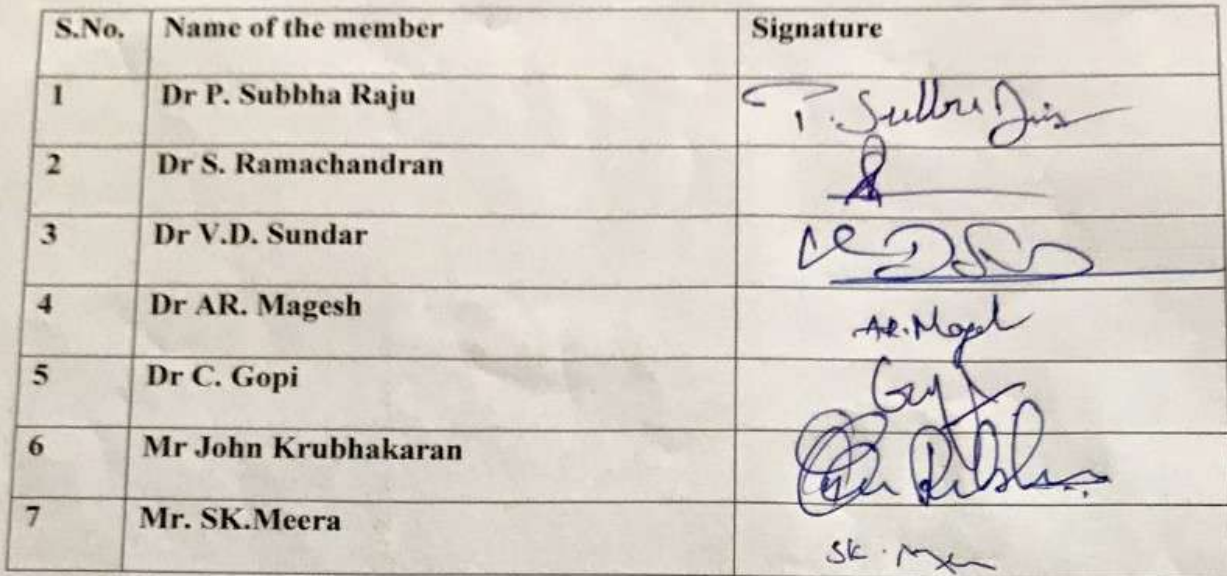 S.No. Name of the member Signature
1 Dr P. Subbha Raju P. Subba
2 Dr S. Ramachandran
3 Dr V.D. Sundar
4 Dr AR. Magesh AR. Magesh
5 Dr C. Gopi
6 Mr John Krubhakaran
7 Mr. SK.Meera SK.